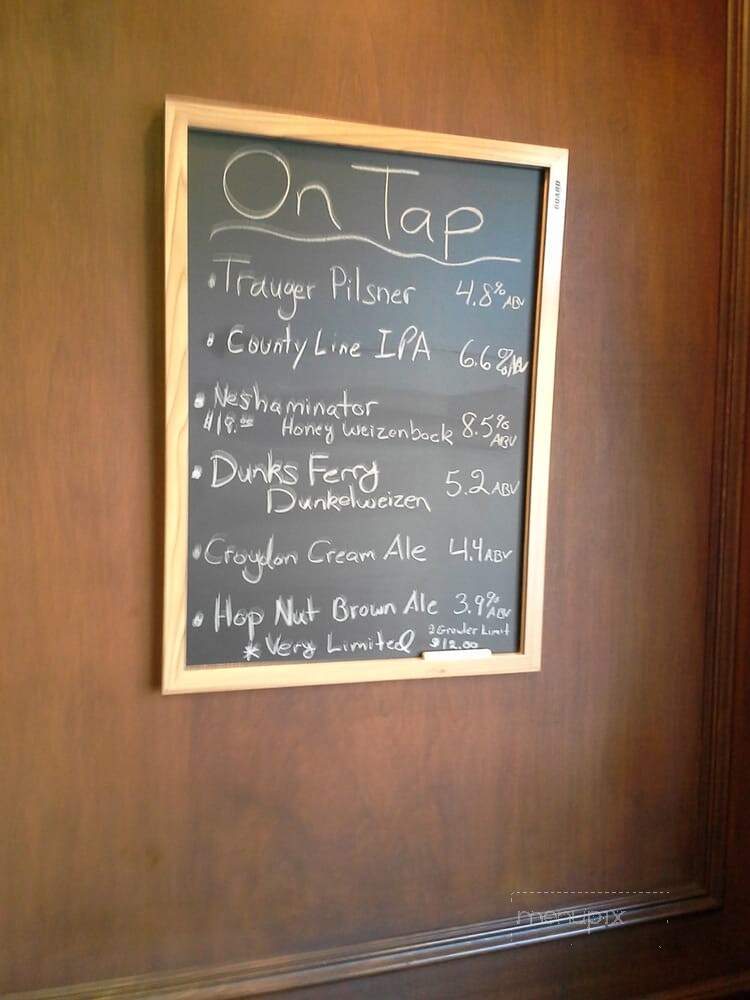 On Tap
• Trauger Pilsner 4.8% ABV
• County Line IPA 6.6% ABV
• Neshaminator
$18.00 Honey Weizenbock 8.5% ABV
• Dunks Ferry 5.2 ABV
Dunkelweizen
• Croydon Cream Ale 4.4 ABV
• Hop Nut Brown Ale 3.9% ABV
* Very Limited 2 Growler Limit
$12.00
BOARD
menupix